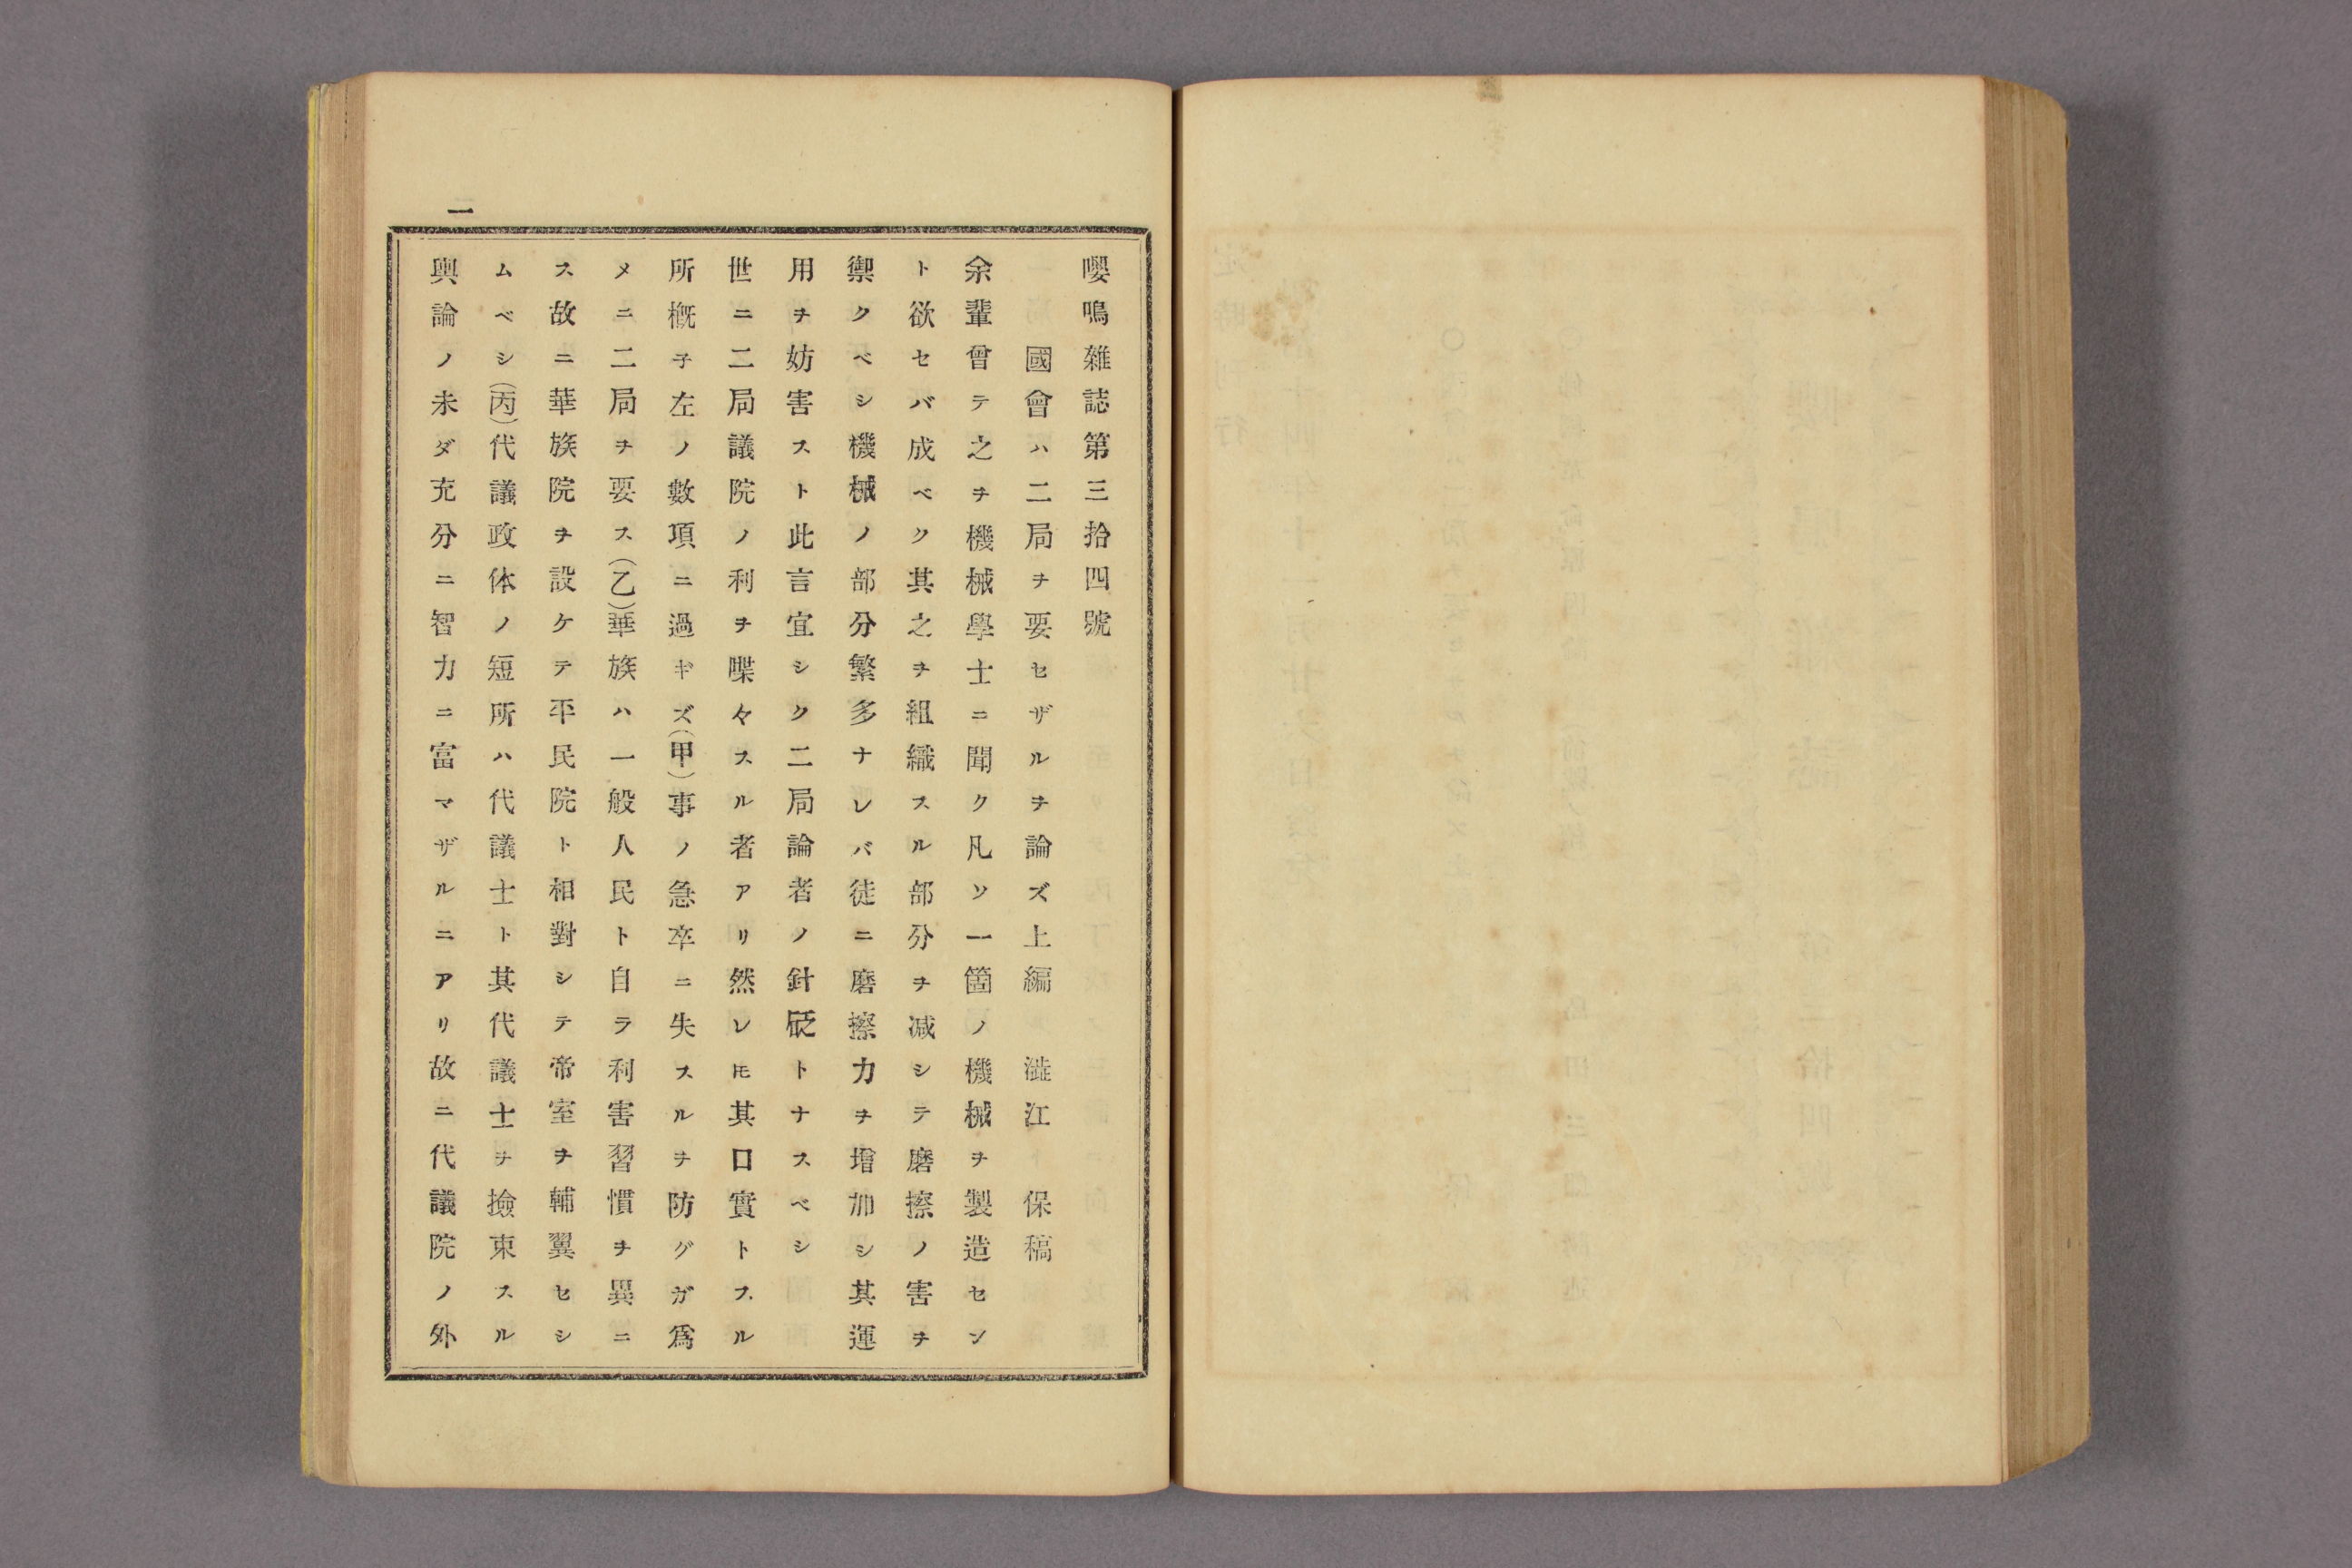 嚶鳴雜誌第三拾四號
國會ハ二局ヲ要セザルヲ論ズ上編 澁江 保稿
余輩曾テ之ヲ機械學士ニ聞ク凡ソ一箇ノ機械ヲ製造セン
ト欲セバ成ベク其之ヲ組織スル部分ヲ减シテ磨擦ノ害ヲ
禦クベシ機械ノ部分繁多ナレバ徒ニ磨擦力ヲ增加シ其運
用ヲ妨害スト此言宜シク二局論者ノ針砭トナスベシ
世ニ二局議院ノ利ヲ喋々スル者アリ然レ𪜈其口實トスル
所槪子左ノ數項ニ過ギズ(甲)事ノ急卒ニ失スルヲ防グガ爲
メニ二局ヲ要ス(乙)華族ハ一般人民ト自ラ利害習慣ヲ異ニ
ス故ニ華族院ヲ設ケテ平民院ト相對シテ帝室ヲ輔翼セシ
ムベシ(丙)代議政体ノ短所ハ代議士ト其代議士ヲ撿束スル
輿論ノ未ダ充分ニ智力ニ富マザルニアリ故ニ代議院ノ外
一